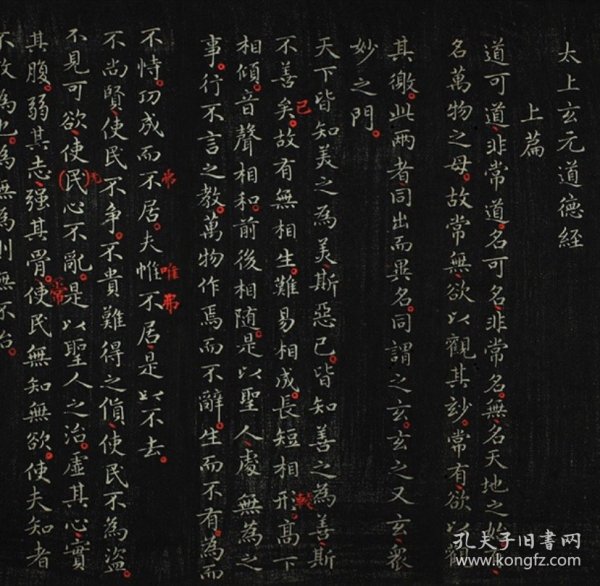 太上玄元道德經
上篇
道可道非常道名可名非常名無名天地之始
名萬物之母故常無欲以觀其妙常有欲以觀
其徼此兩者同出而異名同謂之玄玄之又玄衆
妙之門
天下皆知美之為美斯惡已皆知善之為善斯
已
不善矣故有無相生難易相成長短相形高下
較
相傾音聲相和前後相隨是以聖人處無為之
事行不言之教萬物作焉而不辭生而不有為而
不恃功成而不居夫惟不居是以不去
唯弗
不尚賢使民不爭不貴難得之貨使民不為盜
不見可欲使民心不亂是以聖人之治虛其心實
其腹弱其志強其骨使民無知無欲使夫知者
常
不敢為也為無為則無不治
孔夫子旧书网
www.kongfz.com